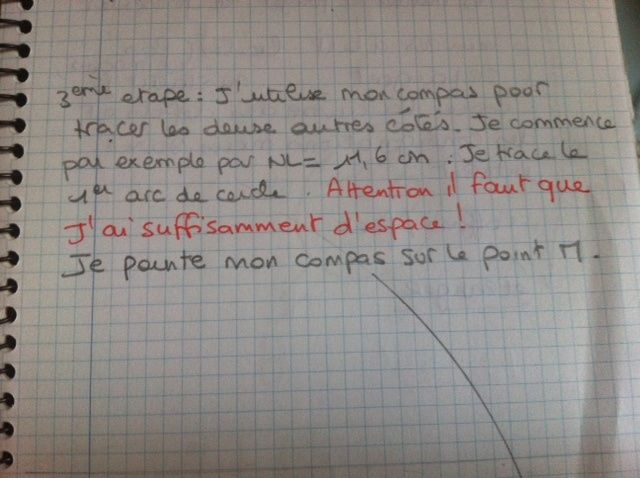 3ème etape : J'utilise mon compas pour
tracer les deuse autres côtés. Je commence
par exemple par NL = 11,6 cm. Je trace le
1er arc de cercle. Attention il faut que
J'ai suffisamment d'espace !
Je pointe mon compas sur le point M.